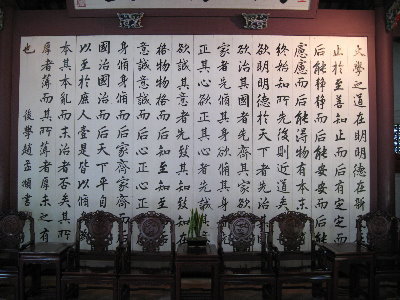 大學之道在明明德在親
止於至善知止而后有定定
后能靜靜而后能安安而后
慮慮而后能得物有本末
終始知所先後則近道矣古
欲明明德於天下者先治
欲治其國者先齊其家欲齊
家者先脩其身欲脩其身
正其心欲正其心者先誠其
欲誠其意者先致其知致知
格物物格而后知至知至
意誠意誠而后心正心正
身脩身脩而后家齊家齊而
國治國治而后天下平自
以至於庶人壹是皆以脩
本其本亂而末治者否矣其所
厚者薄而其所薄者厚未之有
也
後學趙孟頫書